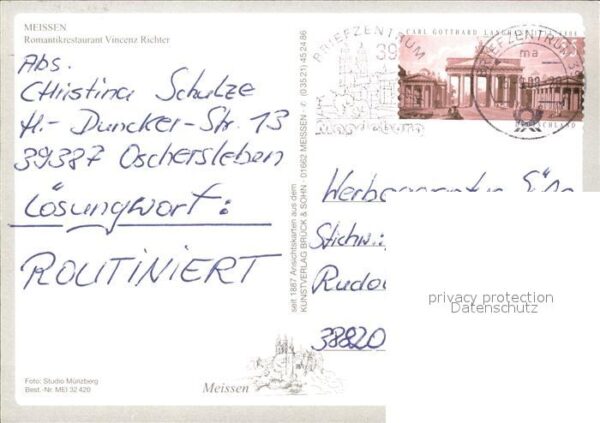 MEISSEN
Romantikrestaurant Vincenz Richter
Abs.
Christina Schulze
H.- Duncker-Str. 13
39387 Oschersleben
Lösungwort:
ROUTINIERT
Foto: Studio Münzberg
Best.-Nr. MEI 32 420
Meissen
seit 1887 Ansichtskarten aus dem
KUNSTVERLAG BRÜCK & SOHN · 01662 MEISSEN · ✆ (03521) 45 24 86
BRIEFZENTRUM
39
CARL GOTTHARD
BRIEFZENTRUM
ma
Werbeagentur
Stichw.:
38820
privacy protection
Datenschutz